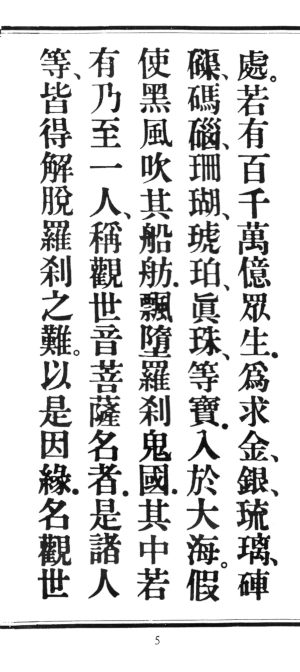 處。若有百千萬億眾生。爲求金、銀、琉璃、硨
磲、碼碯、珊瑚、琥珀、眞珠、等寶。入於大海。假
使黑風吹其船舫。飄墮羅剎鬼國。其中若
有乃至一人、稱觀世音菩薩名者。是諸人
等、皆得解脫羅剎之難。以是因緣。名觀世
5